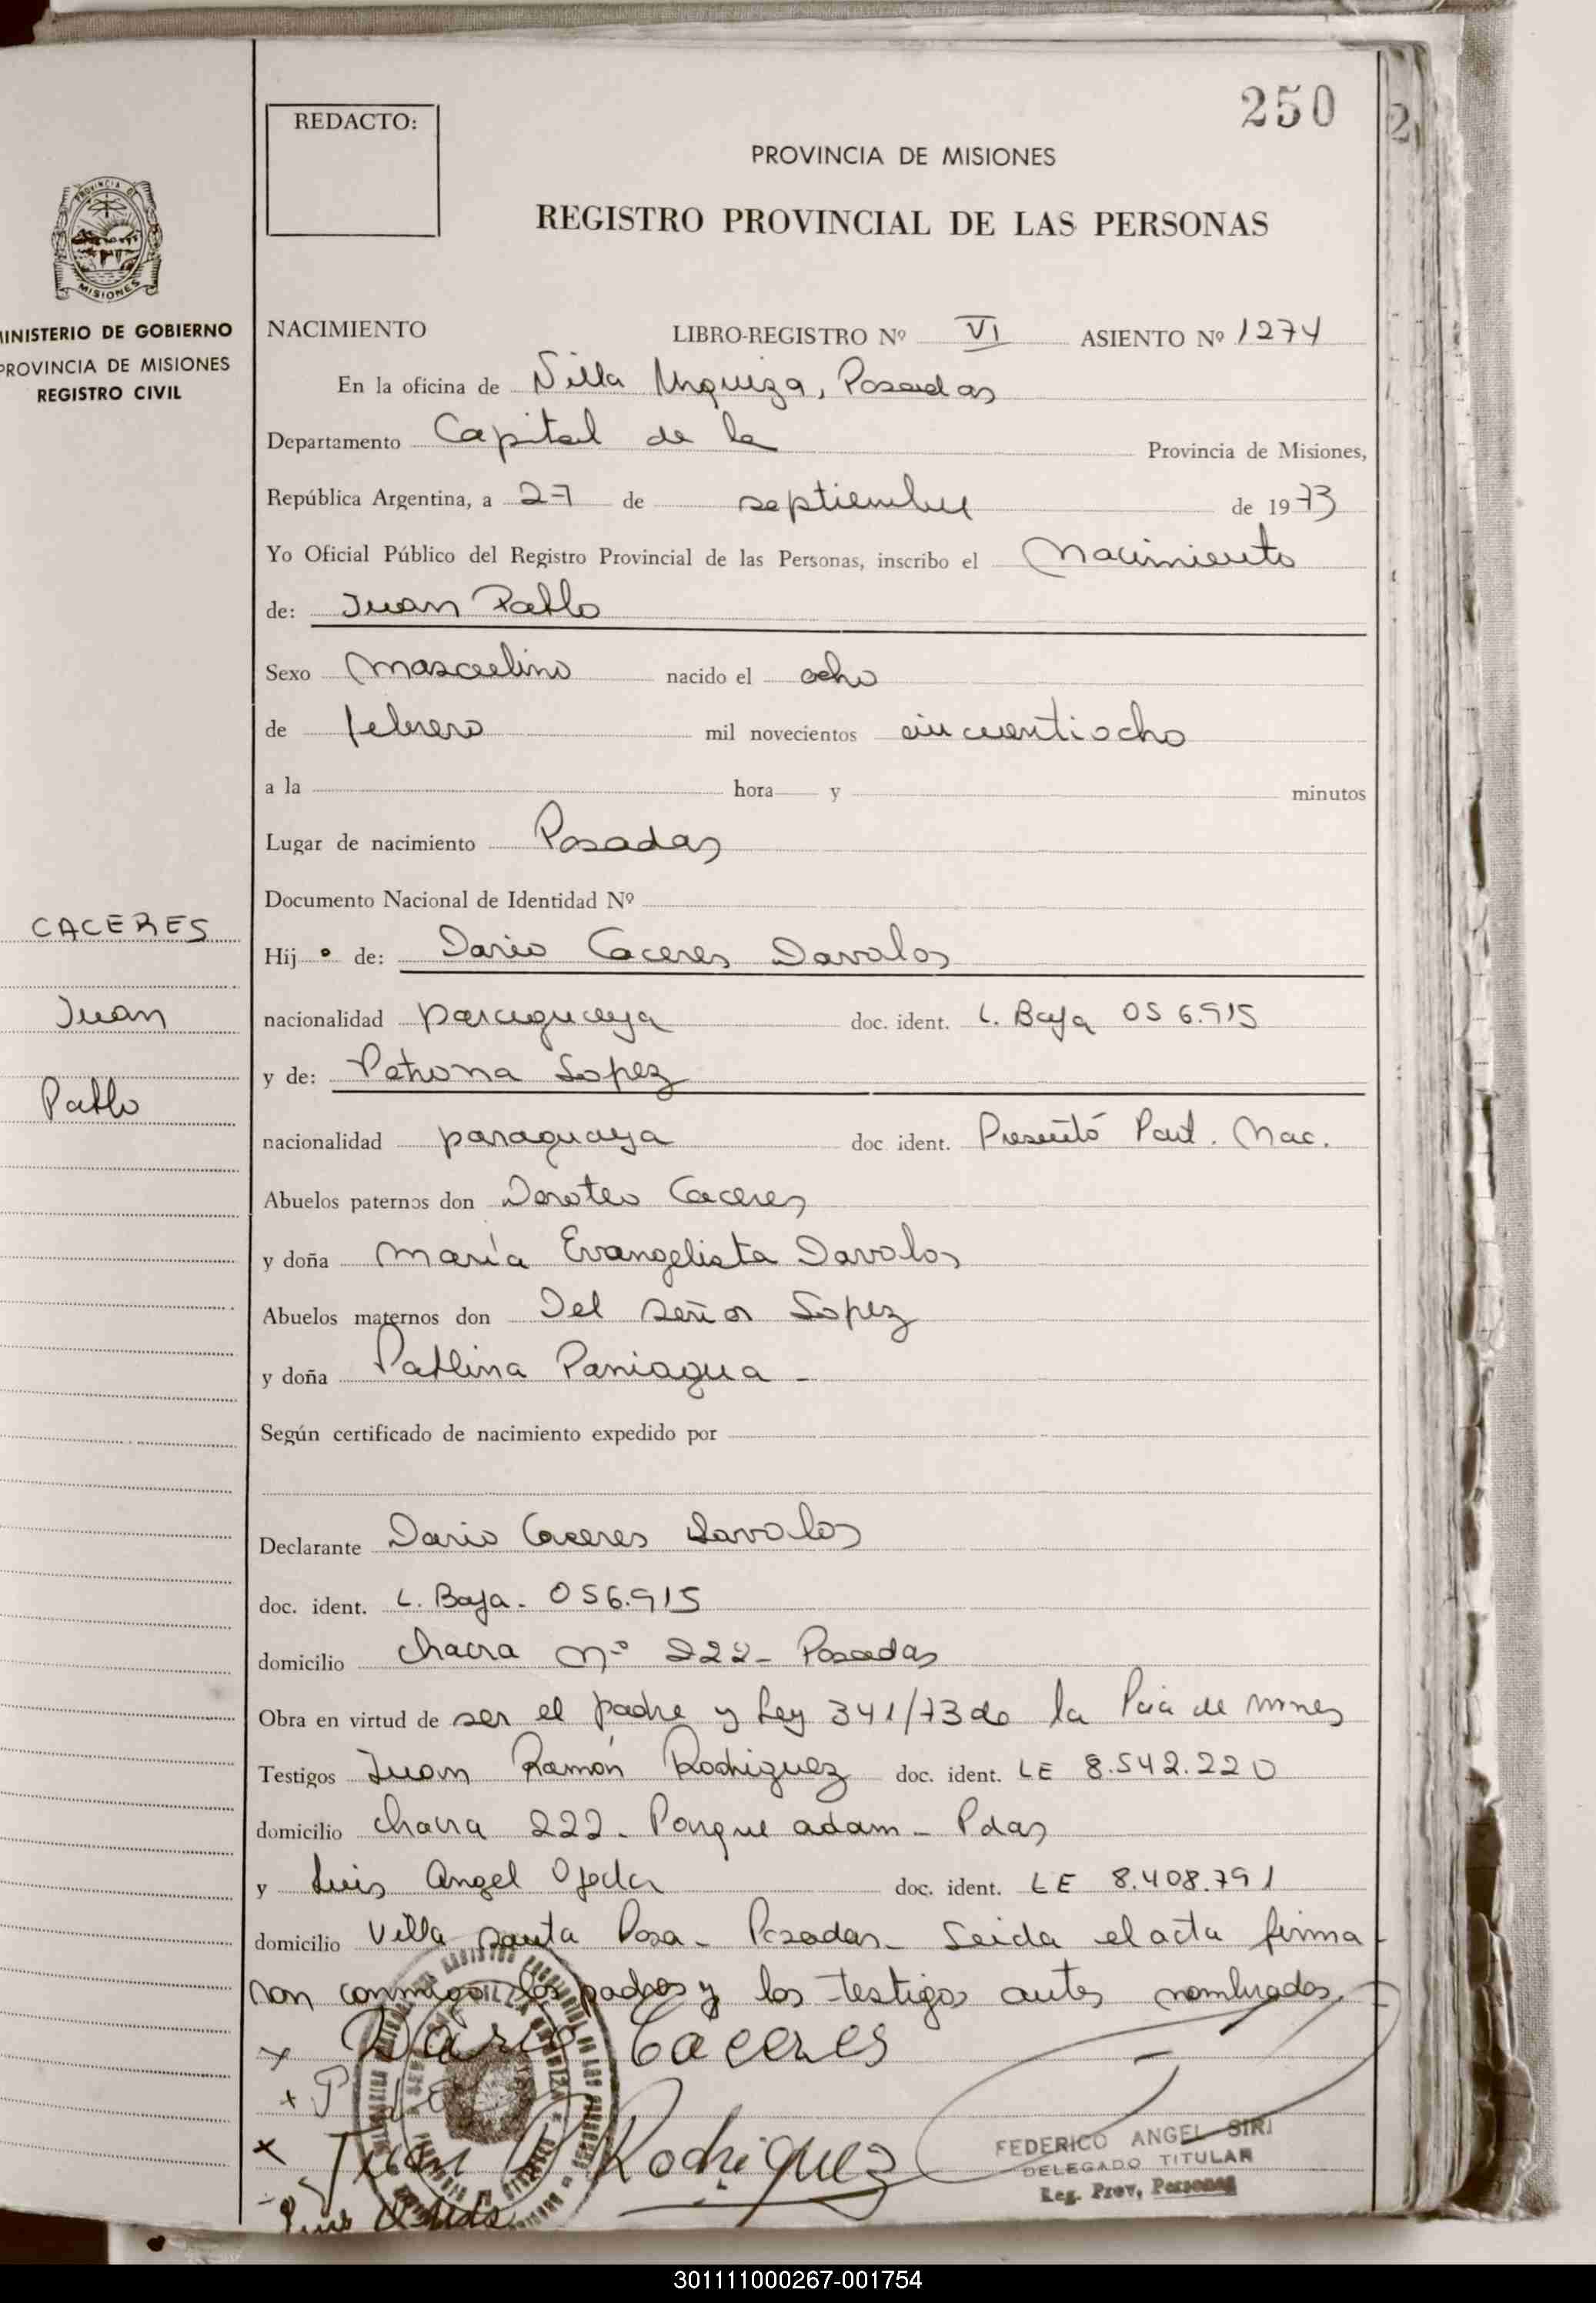 250
REDACTO:
PROVINCIA DE MISIONES
REGISTRO PROVINCIAL DE LAS PERSONAS
PROVINCIA DE
MISIONES
MINISTERIO DE GOBIERNO
PROVINCIA DE MISIONES
REGISTRO CIVIL
NACIMIENTO LIBRO-REGISTRO Nº VI ASIENTO Nº 1274
En la oficina de Villa Urquiza, Posadas
Departamento Capital de la Provincia de Misiones,
República Argentina, a 27 de septiembre de 1973
Yo Oficial Público del Registro Provincial de las Personas, inscribo el Nacimiento
de: Juan Pablo
Sexo Masculino nacido el ocho
de febrero mil novecientos cincuentiocho
a la hora y minutos
Lugar de nacimiento Posadas
Documento Nacional de Identidad Nº
CACERES
Hij o de: Dario Caceres Davalos
Juan
nacionalidad paraguaya doc. ident. C. Baja 056.915
y de: Petrona Lopez
Pablo
nacionalidad paraguaya doc ident. Presentó Part. Nac.
Abuelos paternos don Doroteo Caceres
y doña María Evangelista Davalos
Abuelos maternos don Del Señor Lopez
y doña Pablina Paniagua -
Según certificado de nacimiento expedido por
Declarante Dario Caceres Davalos
doc. ident. C. Baja - 056.915
domicilio chacra nº 222 - Posadas
Obra en virtud de ser el padre y Ley 341/73 de la Pcia de Mnes
Testigos Juan Ramón Rodriguez doc. ident. LE 8.542.220
domicilio chacra 222 - Parque adam - Pdas
y Luis Angel Ojeda doc. ident. LE 8.408.791
domicilio Villa santa Rosa - Posadas - Leida el acta firma
ron conmigo los padres y los testigos antes nombrados.
x Dario Caceres
x
x Juan R Rodriguez
FEDERICO ANGEL SIRI
DELEGADO TITULAR
Reg. Prov, Personas
Luis
301111000267-001754